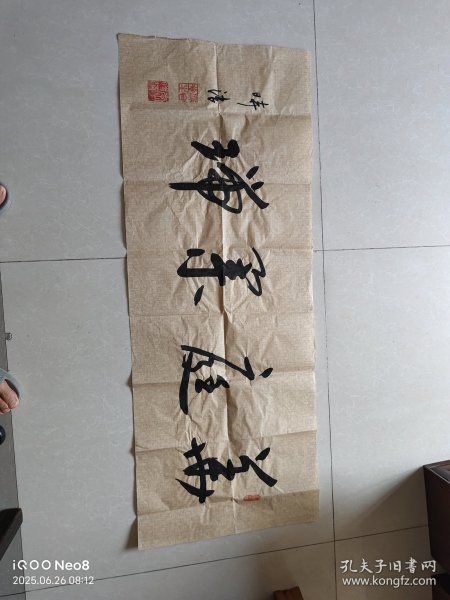 華庭集瑞
iQOO Neo8
2025.06.26 08:12
孔夫子旧书网
www.kongfz.com